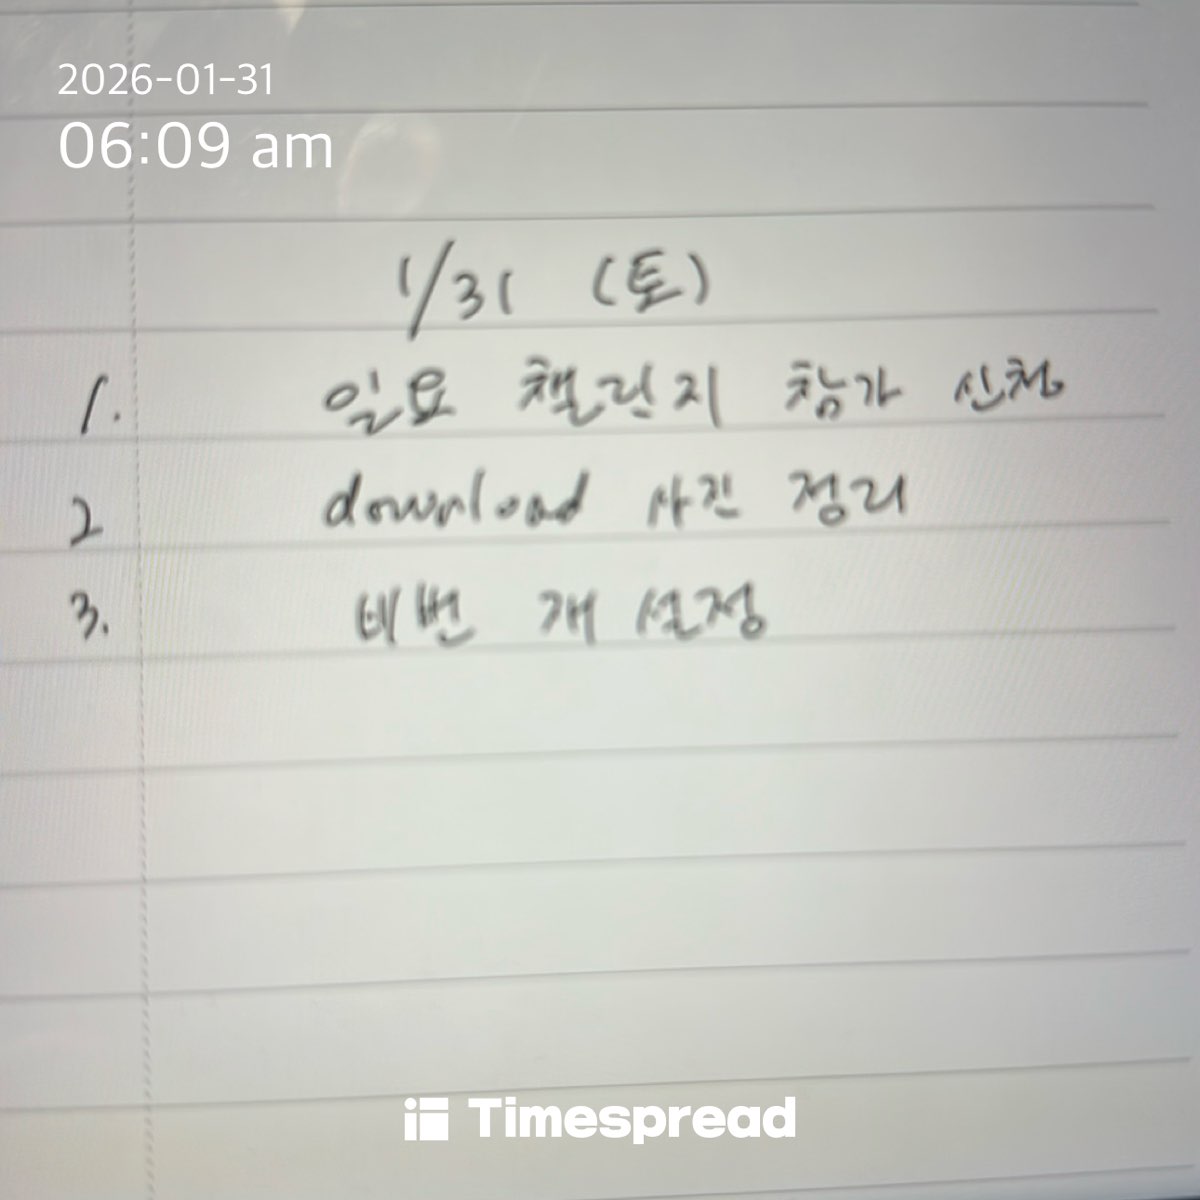 2026-01-31
06:09 am
1/31 (토)
1. 일요 챌린지 참가 신청
2 download 사진 정리
3. 비번 개 설정
Timespread